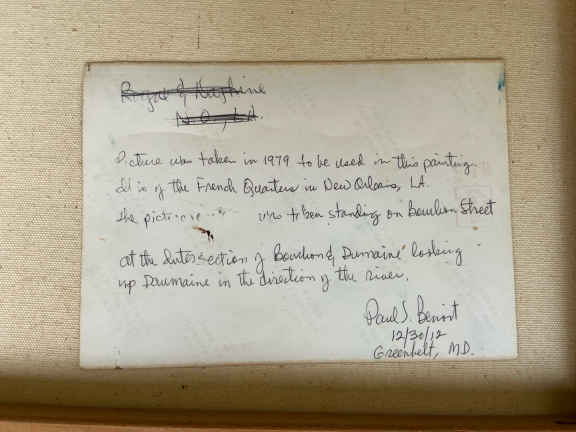 Royal &
N.O., LA.
Picture was taken in 1979 to be used in this painting.
It is of the French Quarters in New Orleans, LA.
the picture was taken standing on Bourbon Street
at the Intersection of Bourbon & Dumaine looking
up Doumaine in the direction of the river.
Paul S. Benoit
12/30/12
Greenbelt, MD.